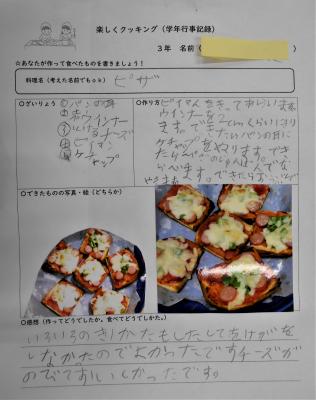 楽しくクッキング（学年行事記録）
３年 名前（
☆あなたが作って食べたものを書きましょう！
料理名（考えた名前でもok）
ピザ
○ざいりょう
○作り方
①パンの耳
②赤ウインナー
③とけるチーズ
④ピーマン
⑤ケチャップ
ピイマンをきって
ウインナーを2cmくらいにきり
ます。できたらパンの耳に
ケチャップをぬります。でき
たら
○できたものの写真・絵（どちらか）
○感想（作ってどうでしたか。食べてどうでしたか。）
いろいろのきりかたもしたしてもけがを
しなかったのでよかったですチーズが
のびておいしかったです。